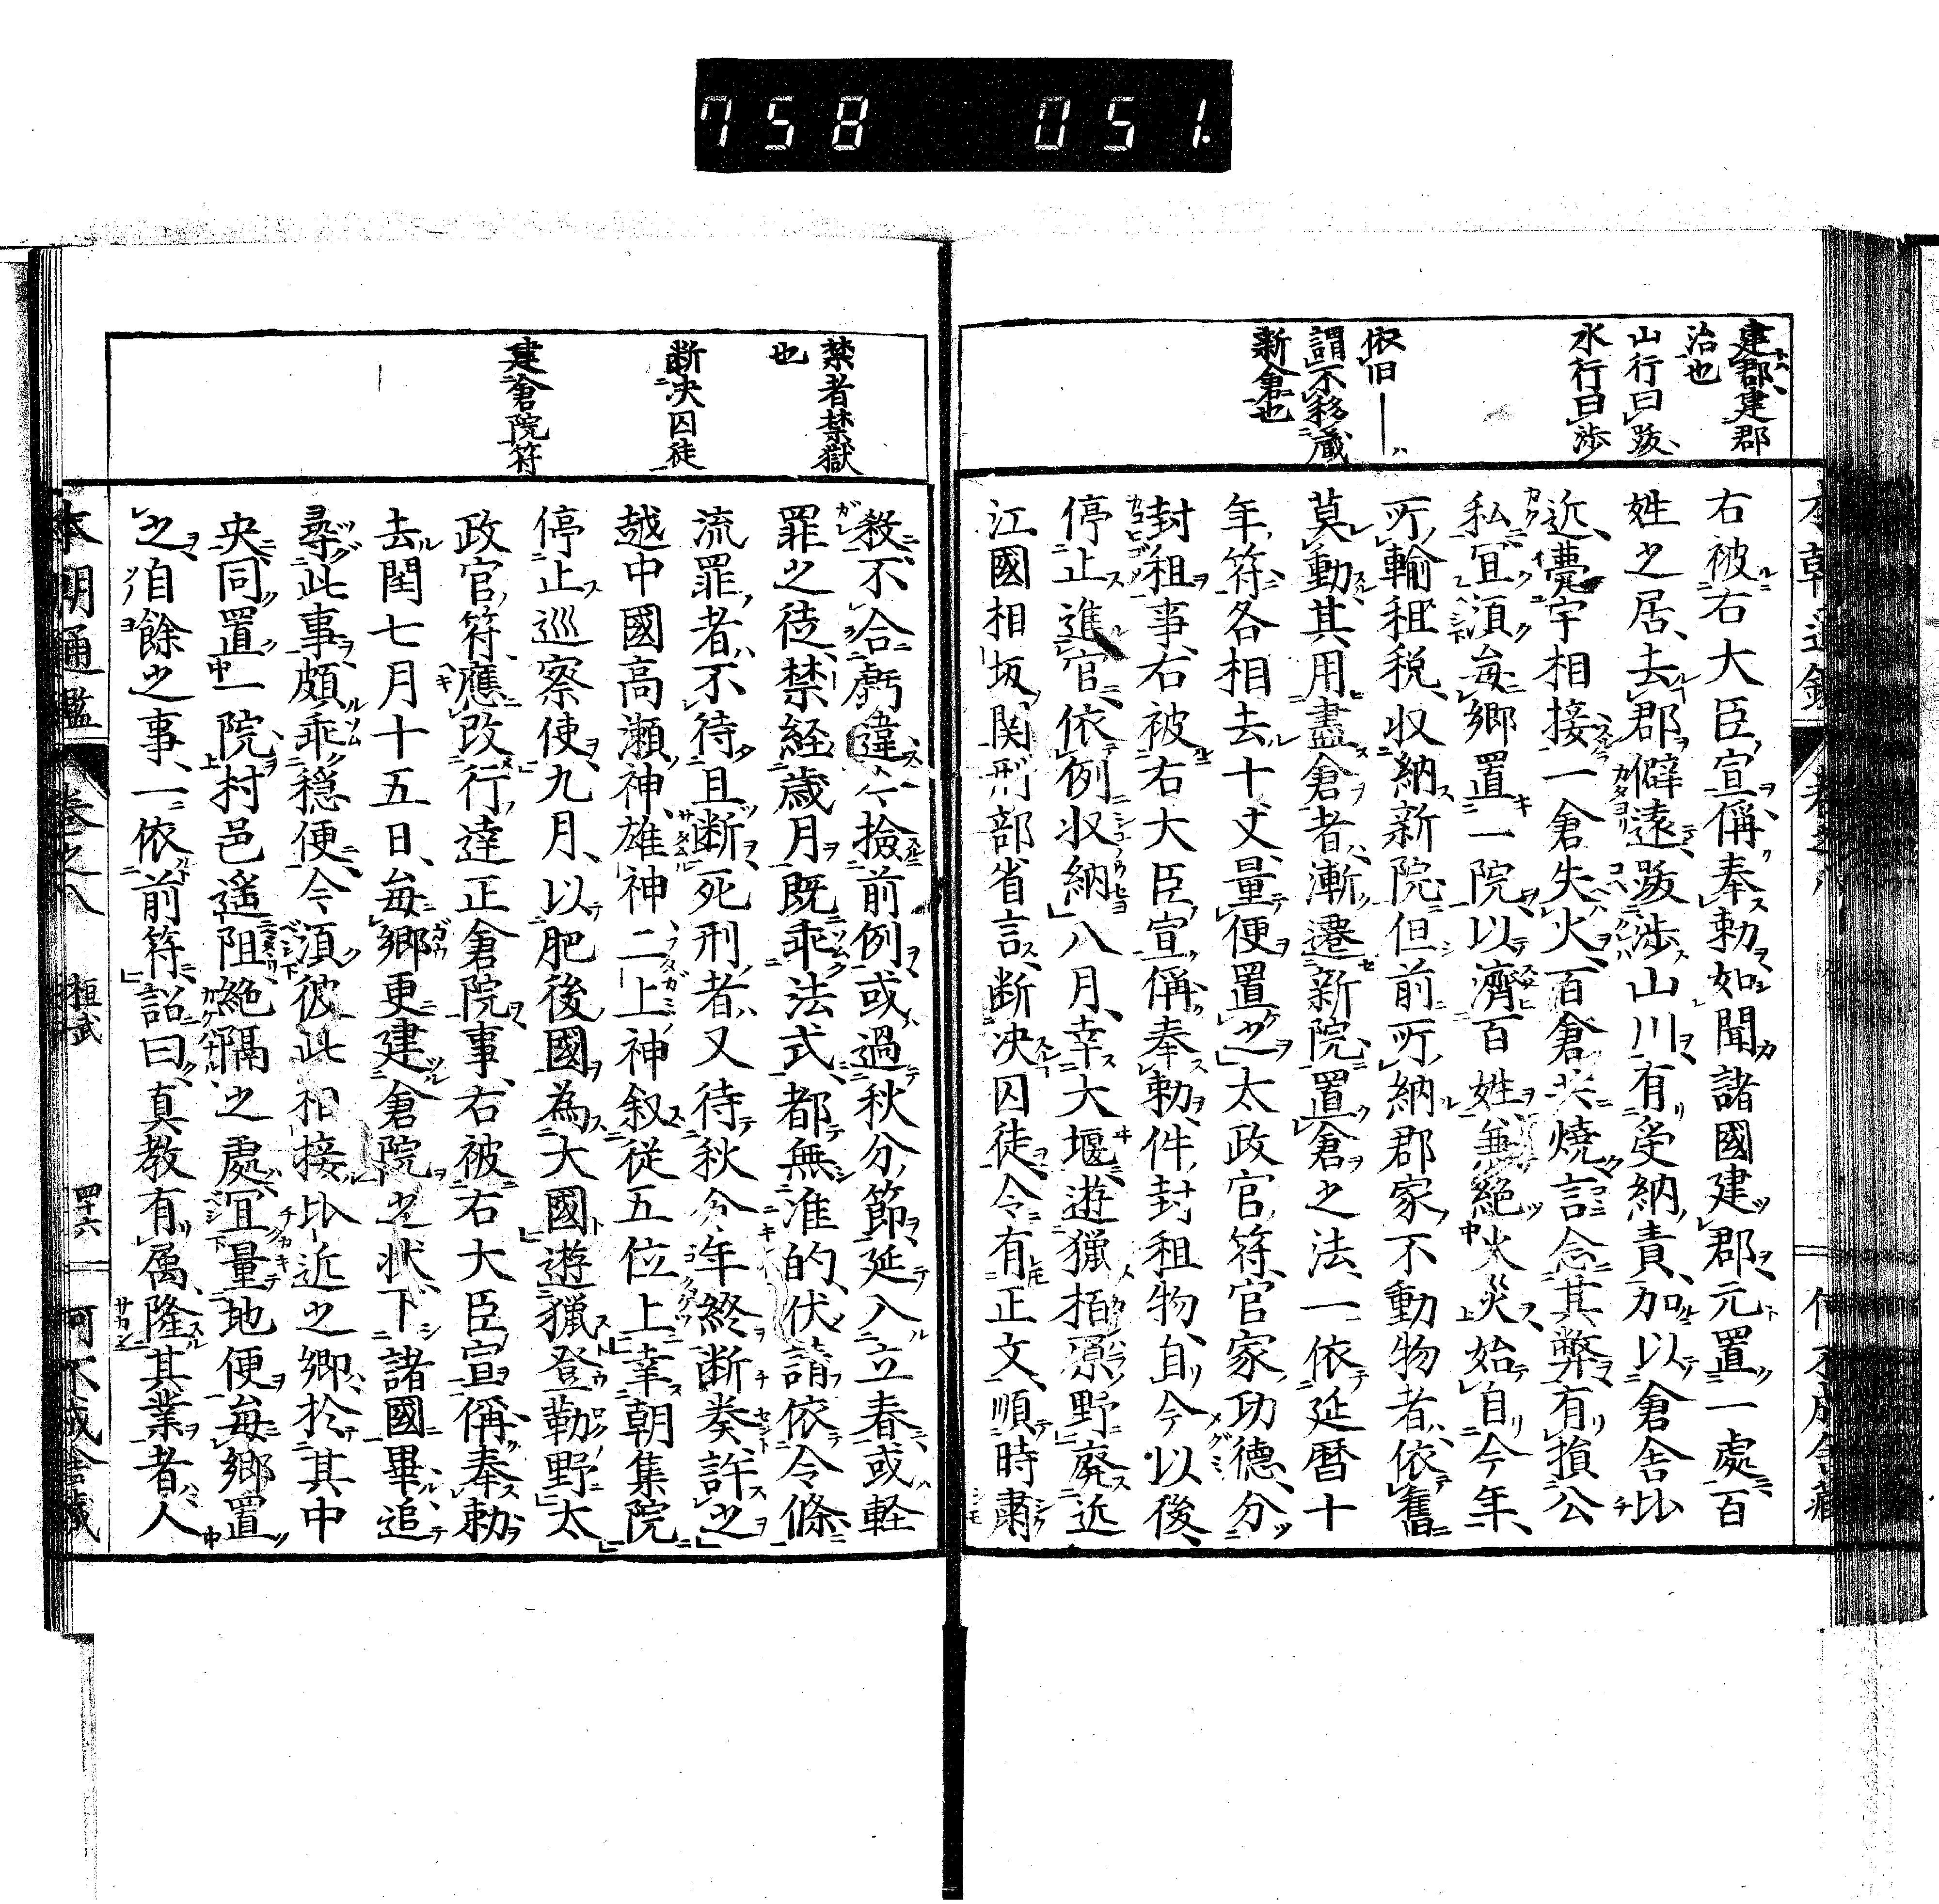 758 051.
建郡建郡
治也
山行曰跋
水行曰渉
依旧
謂不移蔵
新倉也
右被右大臣宣稱奉勅如聞諸國建郡元置一處百
姓之居去郡僻遠跋渉山川有受納責加以倉舎比
近甍宇相接一倉失火百倉共焼言念其弊有損公
私宜須毎郷置一院以濟百姓無絶火災始自今年
所輸租税収納新院但前所納郡家不動物者依舊
莫動其用盡倉者漸遷新院置倉之法一依延暦十
年符各相去十丈量便置之太政官符官家功德分
封租事右被右大臣宣稱奉勅件封租物自今以後
停止進官依例収納八月幸大堰遊猟栢原野廃近
江國相坂関刑部省言断决囚徒令有正文順時肅
禁者禁獄
也
断决囚徒
建倉院符
殺不合虧違今撿前例或過秋分節延入立春或軽
罪之徒禁経歳月既乖法式都無准的伏請依令條
流罪者不待且断死刑者又待秋分年終断奏許之
越中國高瀬神雄神二上神叙従五位上幸朝集院
停止巡察使九月以肥後國為大國遊猟登勒野太
政官符應改行達正倉院事右被右大臣宣稱奉勅
去閏七月十五日毎郷更建倉院之状下諸國畢追
尋此事頗乖穏便今須彼此相接比近之郷於其中
央同置一院村邑遥阻絶隔之處宜量地便毎郷置
之自餘之事一依前符詔曰真教有属隆其業者人
本朝通鑑 巻之八 桓武 四十六